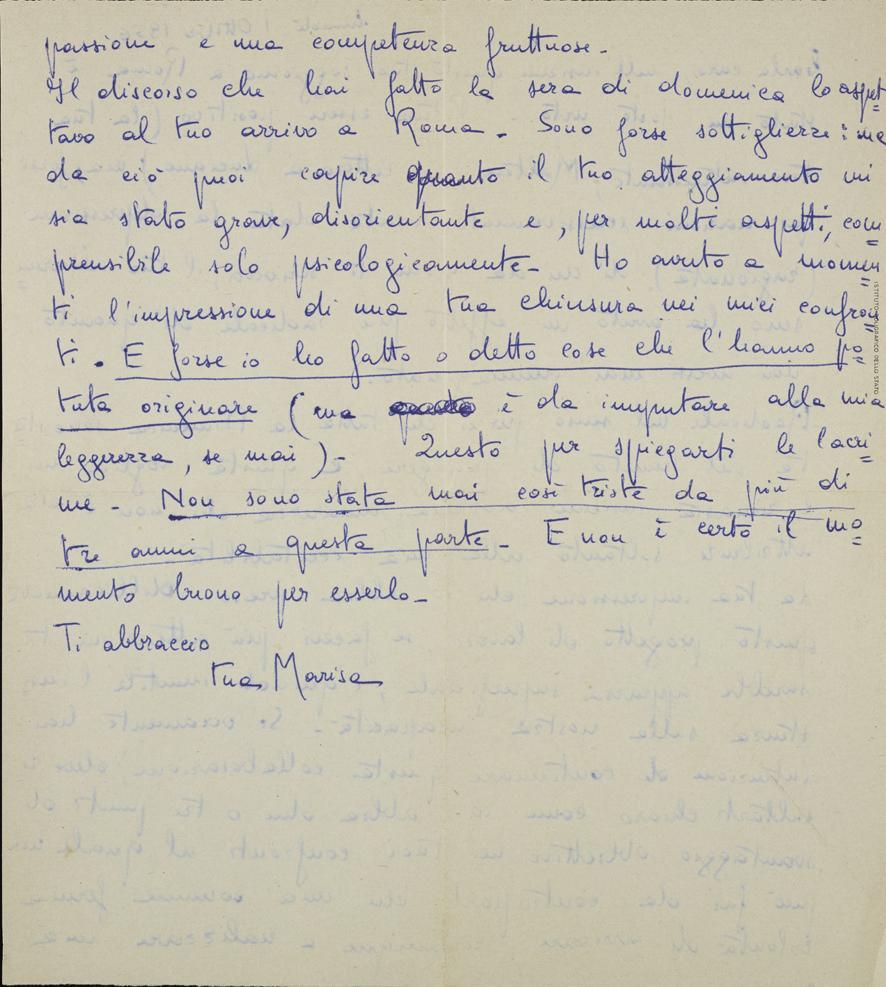 passione e una competenza fruttuose -
Il discorso che hai fatto la sera di domenica lo aspet=
tavo al tuo arrivo a Roma - Sono forse sottigliezze: ma
da ciò puoi capire quanto il tuo atteggiamento mi
sia stato grave, disorientante e, per molti aspetti, com=
prensibile solo psicologicamente - Ho avuto a momen=
ti l'impressione di una tua chiusura nei miei confron=
ti. E forse io ho fatto o detto cose che l'hanno po=
tuta originare (ma è da imputare alla mia
leggerezza, se mai) - Questo per spiegarti le lacri=
me - Non sono stata mai così triste da più di
tre anni a questa parte - E non è certo il mo=
mento buono per esserlo -
Ti abbraccio
tua Marisa